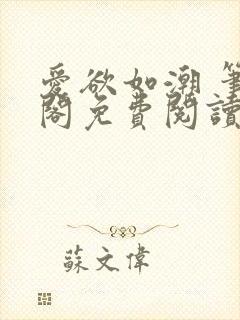 愛欲如潮 筆
閣免費閱讀
蘇文偉